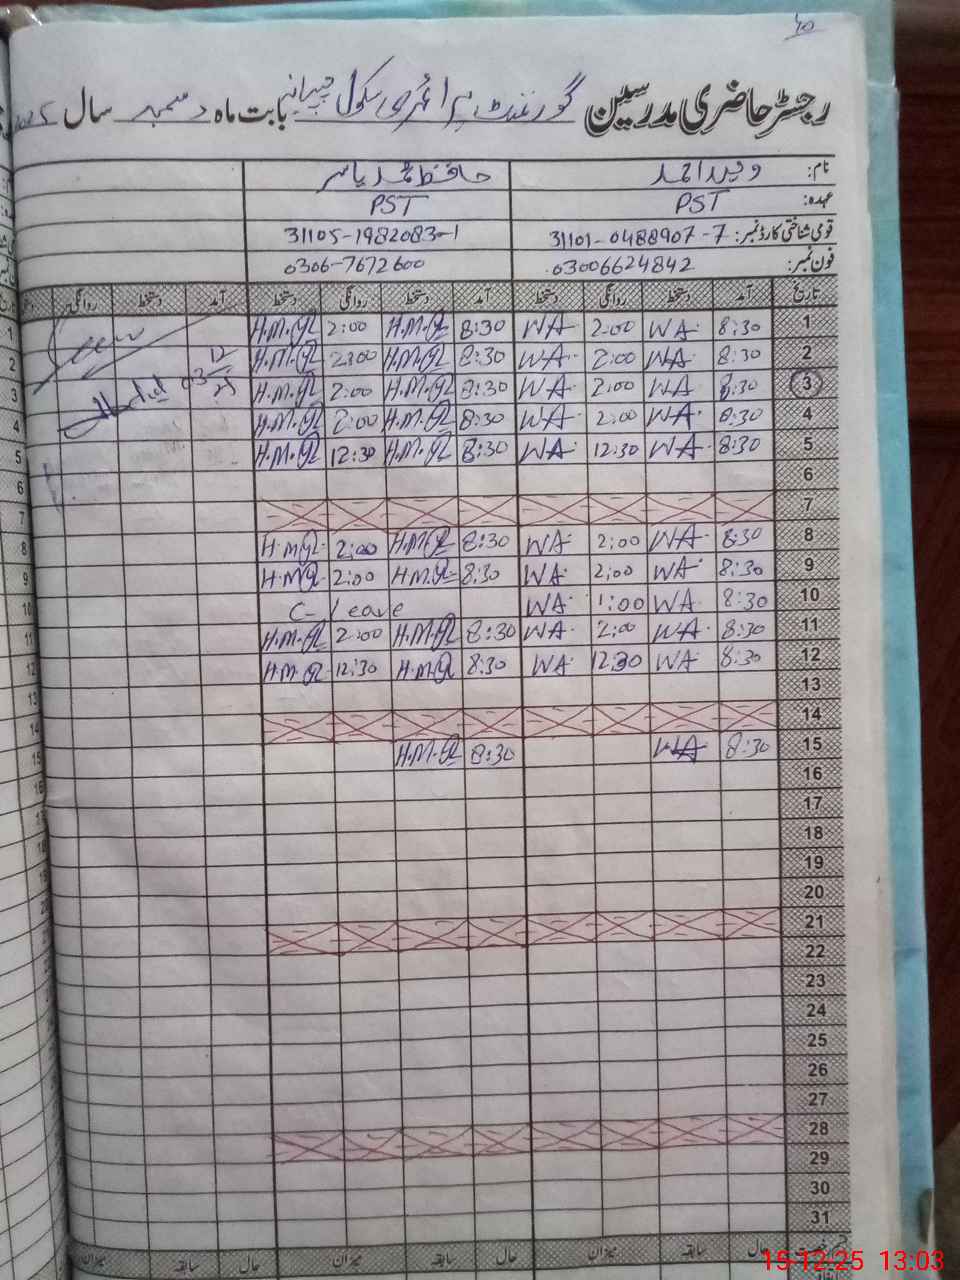 رجسٹر حاضری مدرسین گورنمنٹ پرائمری سکول بابت ماہ دسمبر سال
نام: وحید احمد حافظ محمد یاسر
عہدہ: PST PST
قومی شناختی کارڈ نمبر: 31101-0488907-7 31105-1982083-1
فون نمبر: 03006624842 0306-7672600
تاریخ آمد دستخط روانگی دستخط آمد دستخط روانگی دستخط آمد دستخط روانگی
1 8:30 WA 2:00 WA 8:30 H.M.Y 2:00 H.M.Y
2 8:30 WA 2:00 WA 8:30 H.M.Y 2:00 H.M.Y
3 8:30 WA 2:00 WA 8:30 H.M.Y 2:00 H.M.Y 03 12 25
4 8:30 WA 2:00 WA 8:30 H.M.Y 2:00 H.M.Y
5 8:30 WA 12:30 WA 8:30 H.M.Y 12:30 H.M.Y
6
7
8 8:30 WA 2:00 WA 8:30 H.M.Y 2:00 H.M.Y
9 8:30 WA 2:00 WA 8:30 H.M.Y 2:00 H.M.Y
10 8:30 WA 1:00 WA C-leave
11 8:30 WA 2:00 WA 8:30 H.M.Y 2:00 H.M.Y
12 8:30 WA 12:30 WA 8:30 H.M.Y 12:30 H.M.Y
13
14
15 8:30 WA 8:30 H.M.Y
16
17
18
19
20
21
22
23
24
25
26
27
28
29
30
31
حال سابقہ میزان حال سابقہ میزان حال سابقہ میزان
15-12-25 13:03